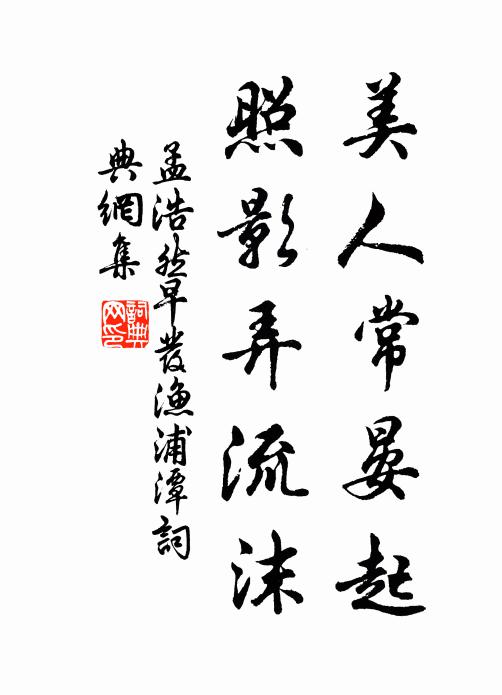 美人常晏起
照影弄流沫
孟浩然早發漁浦潭詞
典網集
詞典網印